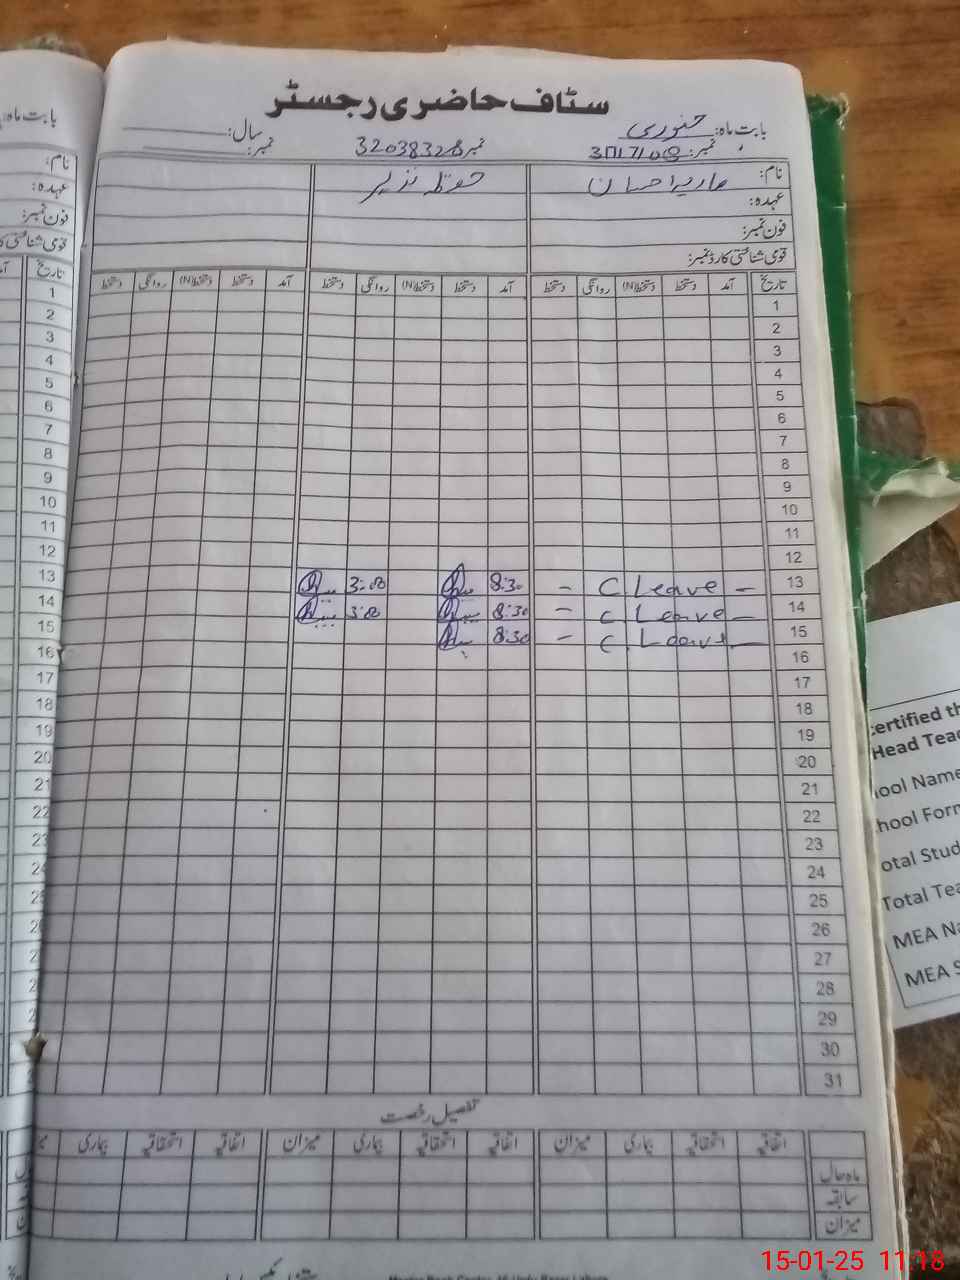 سٹاف حاضری رجسٹر
بابت ماہ: جنوری سال:
نمبر: نمبر 32038328 نمبر:
نام: ماریہ احسان
عہدہ:
فون نمبر:
قومی شناختی کارڈ نمبر:
تاریخ آمد دستخط دستخط(N) روانگی دستخط آمد دستخط دستخط(N) روانگی دستخط آمد دستخط دستخط(N) روانگی دستخط
1
2
3
4
5
6
7
8
9
10
11
12
13 - C Leave - 8:30 3:00
14 - C Leave - 8:30 3:00
15 - C Leave - 8:30
16
17
18
19
20
21
22
23
24
25
26
27
28
29
30
31
تفصیل رخصت
اتفاقیہ استحقاقیہ بیماری میزان اتفاقیہ استحقاقیہ بیماری میزان اتفاقیہ استحقاقیہ بیماری
ماہ حال
سابقہ
میزان
بابت ماہ:
نام:
عہدہ:
فون نمبر:
قومی شناختی کا
تاریخ
1
2
3
4
5
6
7
8
9
10
11
12
13
14
15
16
17
18
19
20
21
22
ertified th
Head Teac
ool Name
hool Form
otal Stud
Total Tea
MEA Na
MEA S
15-01-25 11:18